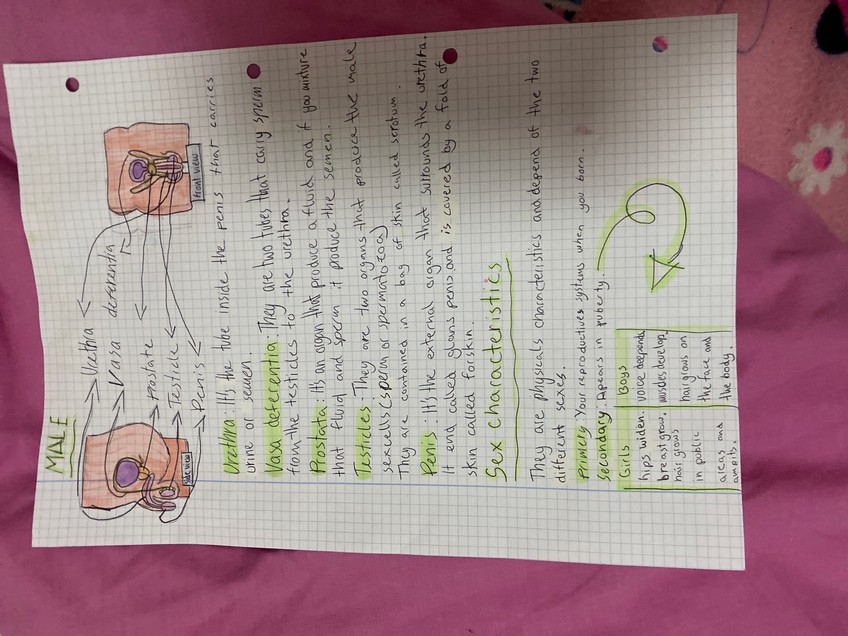 MALE
Urethra
Vasa deferentia
prostate
Testicle
Penis
Side view
Front view
Urethra: It's the tube inside the penis that carries
urine or semen
Vasa deferentia: They are two tubes that carry sperm
from the testicles to the urethra.
Prostata: it's an organ that produce a fluid and if you mixture
that fluid and sperm it produce the semen.
Testicles: They are two organs that produce the male
sexcells (sperm or spermatozoa)
They are contained in a bag of skin called scrotum.
Penis: It's the external organ that surrounds the urethra.
It end called glans penis, and is covered by a fold of
skin called forskin.
Sex characteristics
They are physicals characteristics and depend of the two
different sexes.
Primary Your reproductives systems when you born.
Secondary Apears in puberty.
Girls
Boys
hips widen.
breast grow.
hair grows
in public
areas and
ampits.
voice deepends
muscles develop.
hair grows on
the face and
the body.